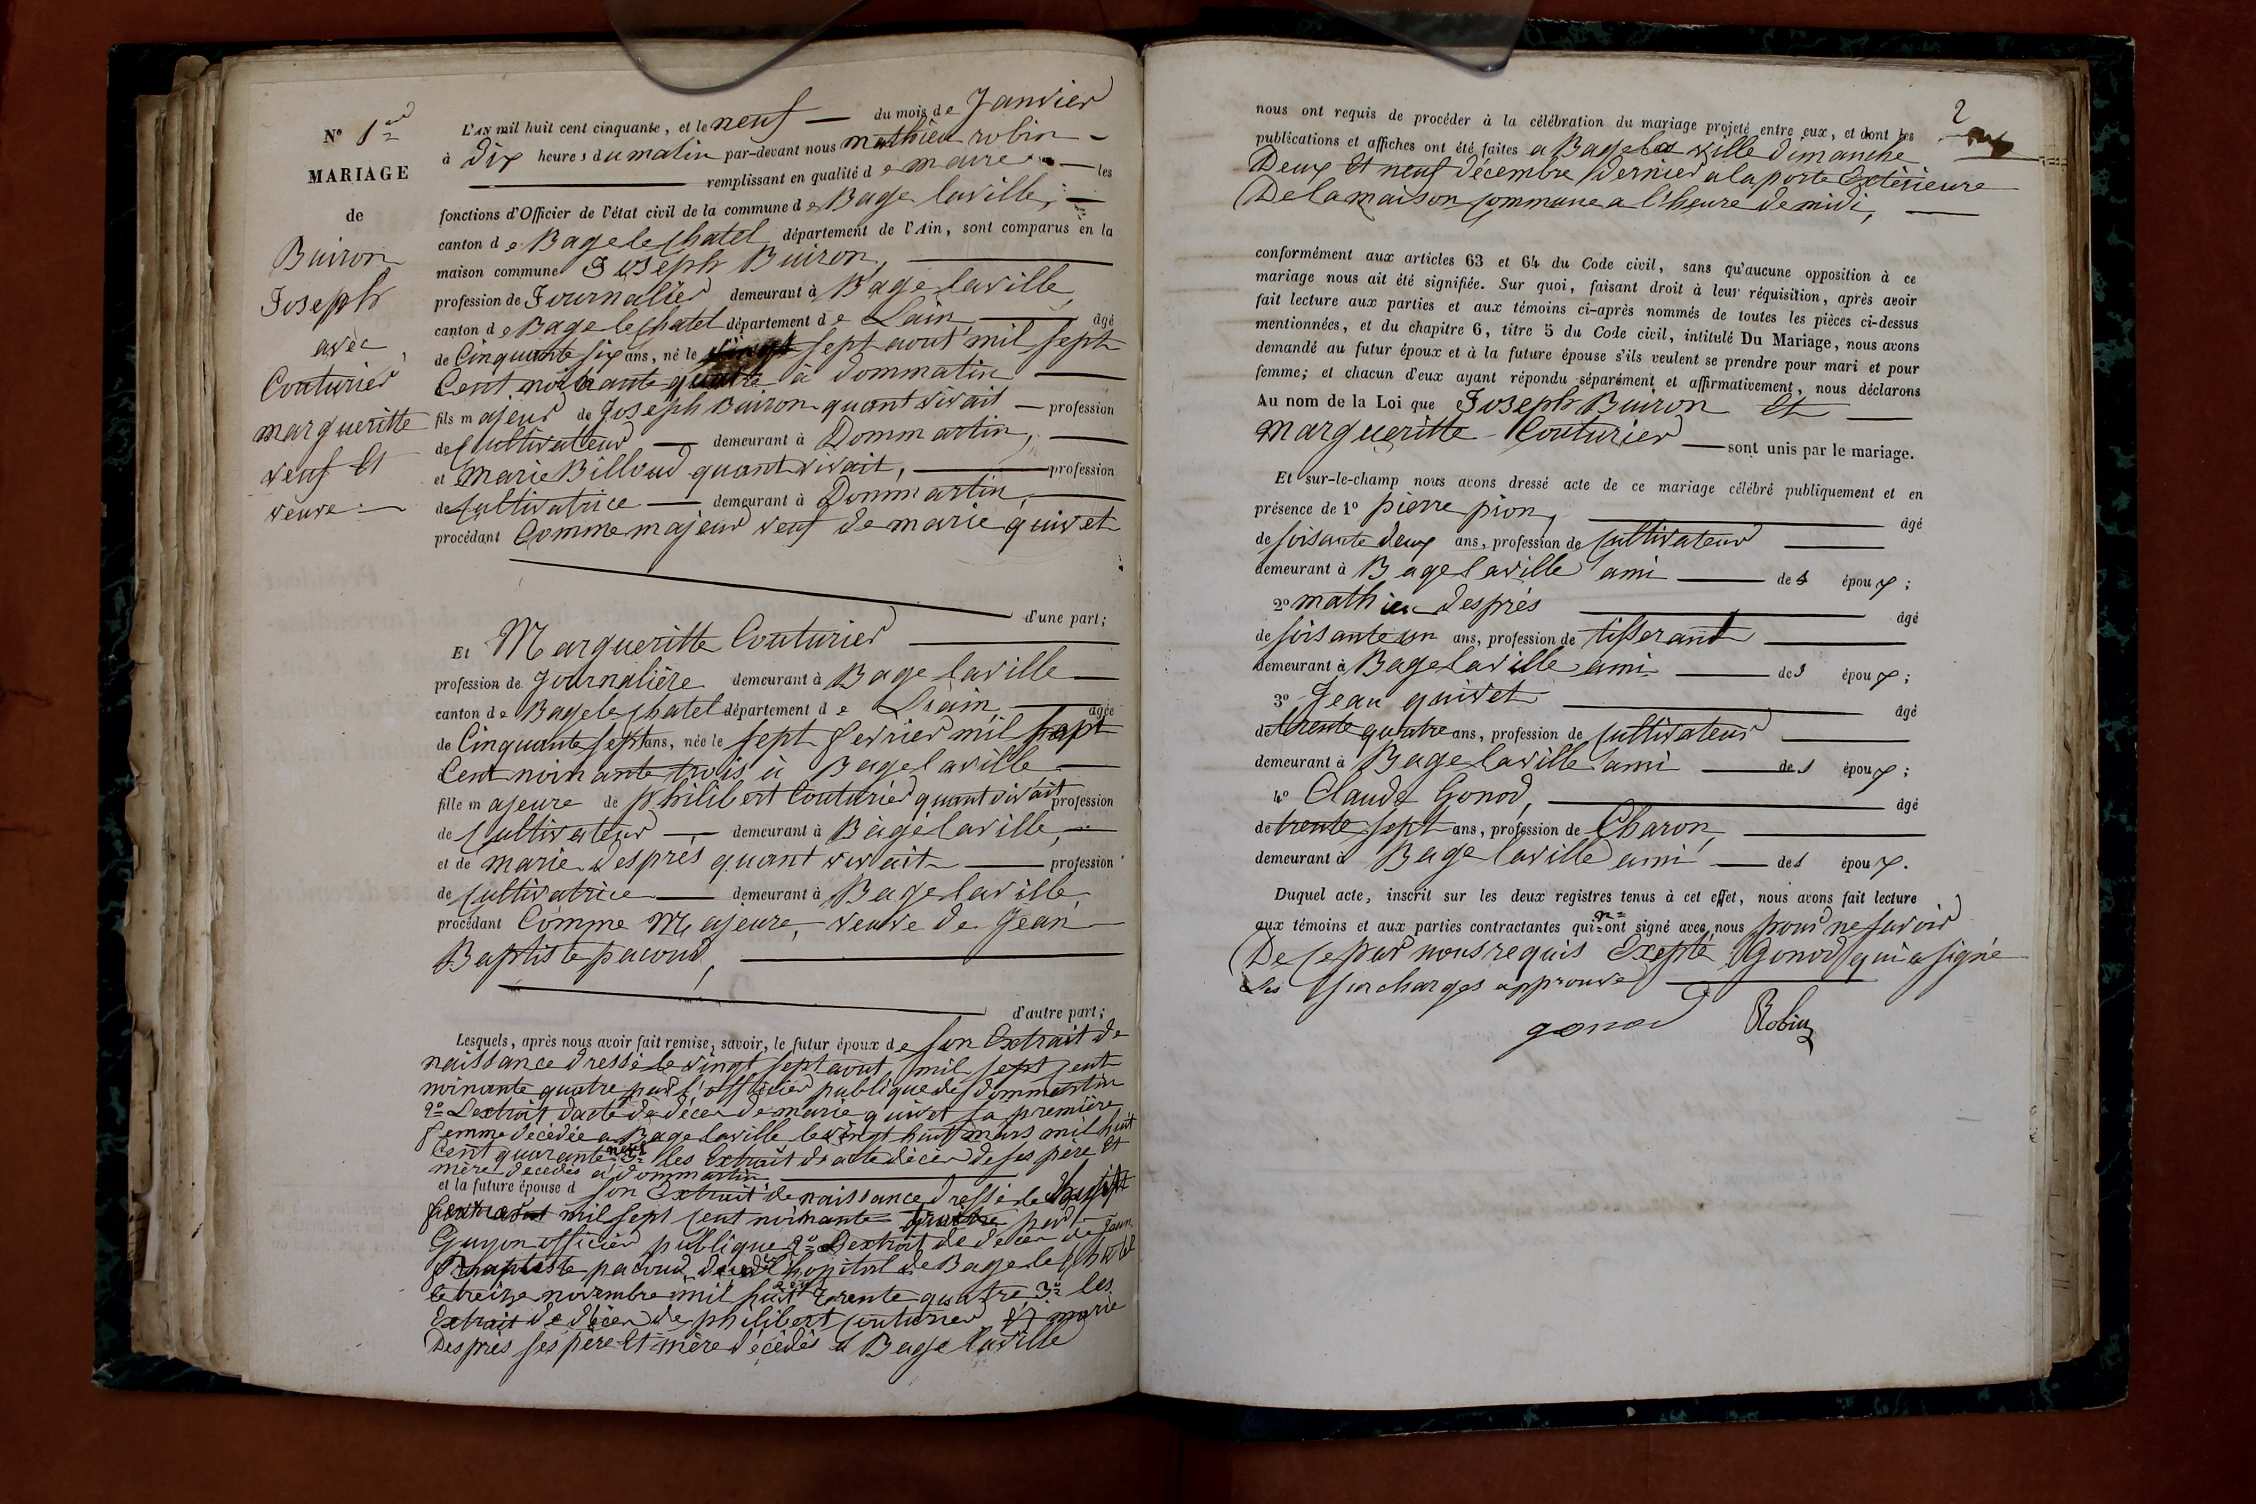 N° 1er
MARIAGE
de
Buiron
Joseph
avec
Couturier
margueritte
veuf Et
veuve
L'AN mil huit cent cinquante, et le neuf du mois de Janvier
à dix heures du matin par-devant nous mathieu robin
remplissant en qualité de maire les
fonctions d'Officier de l'état civil de la commune de Bage laville,
canton de Bage le chatel département de l'Ain, sont comparus en la
maison commune Joseph Buiron,
profession de Journalier demeurant à Bage laville,
canton de Bage le chatel département de Lain âgé
de Cinquante six ans, né le vingt sept aout mil sept
Cent noinante quatre à dommatin
fils majeur de Joseph Buiron quant vivait profession
de Cultivateur demeurant à Dommartin,
et Marie Billoud quant vivait, profession
de Cultivatrice demeurant à Dommartin,
procédant Comme majeur veuf de marie quivet
d'une part;
Et Margueritte Couturier
profession de Journalière demeurant à Bage laville
canton de Bage le chatel département de Liain, âgée
de Cinquante sept ans, née le sept fevrier mil sept
Cent noinante trois à Bage laville
fille majeure de philibert Couturier quant vivait profession
de Cultivateur demeurant à Bagé laville,
et de marie després quant vivait profession
de Cultivatrice demeurant à Bage laville,
procédant Comme Majeure, veuve de Jean
Baptiste pacoud,
d'autre part;
Lesquels, après nous avoir fait remise, savoir, le futur époux de son Extrait de
naissance dressé le vingt sept aout mil sept cent
noinante quatre par l'officier publique de dommartin
2° Lextrait dacte de décer de marie quivet sa première
femme décédée a Bage laville le vingt huit mars mil huit
Cent quarante neuf 3° les Extrait de acte décer de ses père Et
mère decedés a dommartin
et la future épouse d son Extrait de naissance dressé le sept
mil sept cent noinante par
Guyon officier publique 2° Lextrait de decer de Jean
Baptiste pacoud décédé hopital de Bage le chatel
le treize novembre mil huit cent trente quatre 3° les
Extrait de décer de philibert couturier Et marie
Després ses père Et mère décédés a Bage laville
2
nous ont requis de procéder à la célébration du mariage projeté entre eux, et dont les
publications et affiches ont été faites a Bage la ville dimanche
Deux Et neuf décembre dernier a la porte Extèrieure
De la maison commune a l'heure de midi,
conformément aux articles 63 et 64 du Code civil, sans qu'aucune opposition à ce
mariage nous ait été signifiée. Sur quoi, faisant droit à leur réquisition, après avoir
fait lecture aux parties et aux témoins ci-après nommés de toutes les pièces ci-dessus
mentionnées, et du chapitre 6, titre 5 du Code civil, intitulé Du Mariage, nous avons
demandé au futur époux et à la future épouse s'ils veulent se prendre pour mari et pour
femme; et chacun d'eux ayant répondu séparément et affirmativement, nous déclarons
Au nom de la Loi que Joseph Buiron Et
Margueritte Couturier sont unis par le mariage.
Et sur-le-champ nous avons dressé acte de ce mariage célébré publiquement et en
présence de 1° pierre pion, âgé
de soisante deux ans, profession de Cultivateur
demeurant à Bage laville ami des époux;
2° mathieu després âgé
de soisante un ans, profession de tisserand
demeurant à Bage laville ami des époux;
3° Jean quivet âgé
de trente quatre ans, profession de Cultivateur
demeurant à Bage laville ami des époux;
4° Claude Gonod, âgé
de trente sept ans, profession de Charon,
demeurant à Bage laville ami des époux.
Duquel acte, inscrit sur les deux registres tenus à cet effet, nous avons fait lecture
aux témoins et aux parties contractantes qui n'ont signé avec nous pour ne savoir
De ce par nous requis Exepté Gonod qui a signé
Les surcharges approuvé
gonod Robin